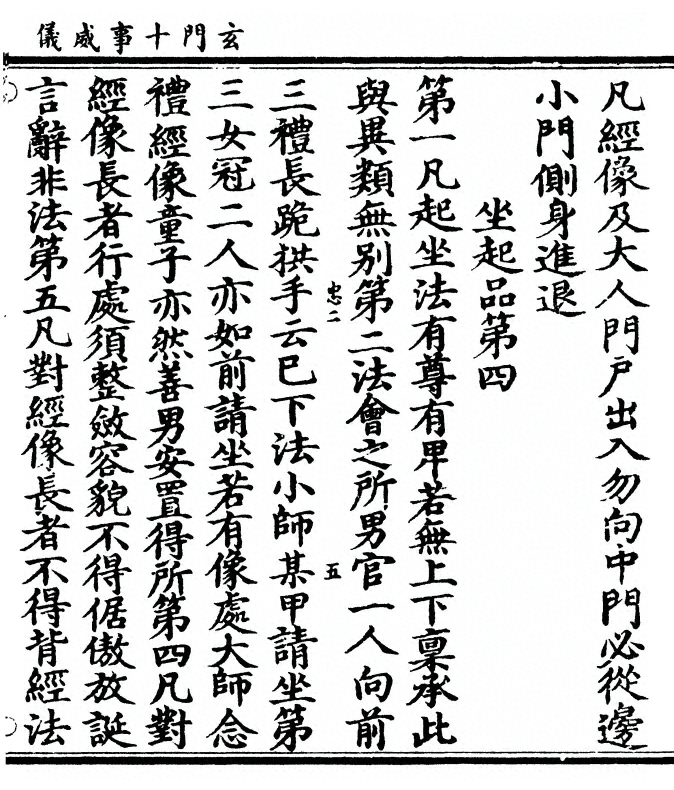 玄門十事威儀
凡經像及大人門户出入勿向中門必從邊
小門側身進退
坐起品第四
第一凡起坐法有尊有甲若無上下稟承此
與異類無别第二法會之所男官一人向前
忠二
五
三禮長跪拱手云已下法小師某甲請坐第
三女冠二人亦如前請坐若有像處大師念
禮經像童子亦然善男安置得所第四凡對
經像長者行處須整斂容貌不得倨傲放誕
言辭非法第五凡對經像長者不得背經法